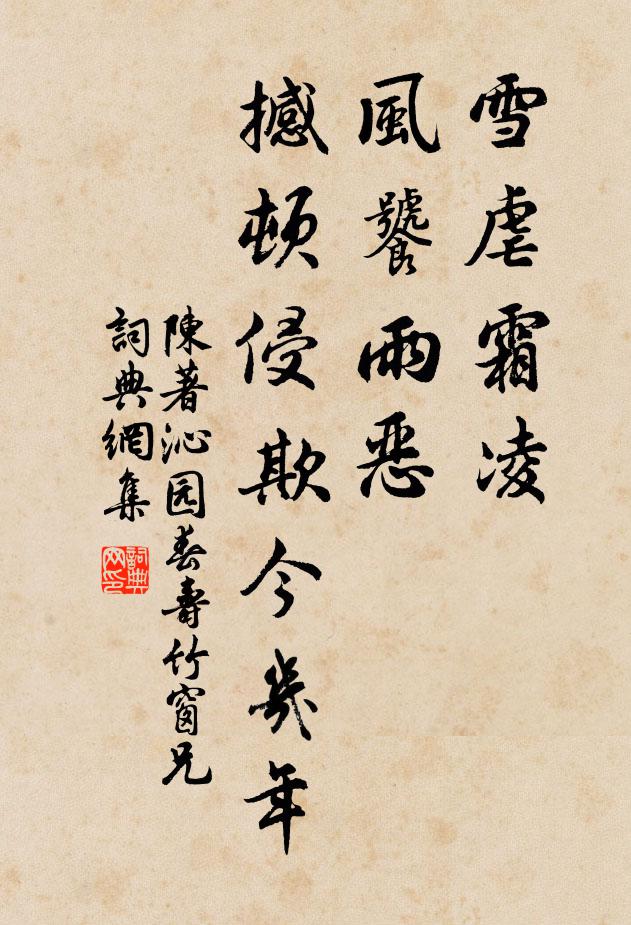 雪虐霜凌
風饕雨惡
撼頓侵欺今幾年
陳著沁园春壽竹窗兄
詞典網集
詞典网印